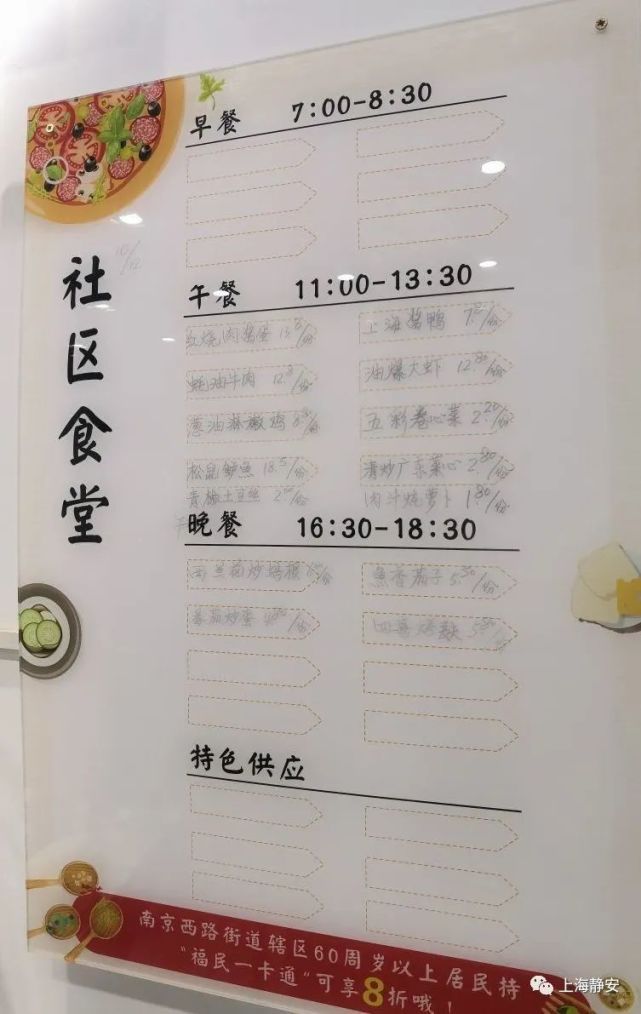 社区食堂
10/12
早餐 7:00-8:30
午餐 11:00-13:30
红烧肉酱蛋 /份
上海酱鸭 /份
蚝油牛肉 /份
油爆大虾 12.80/份
葱油淋椒鸡 /份
五彩卷心菜 2.20/份
松鼠鲈鱼 18.5/份
清炒广东菜心 2.80/份
青椒土豆丝 /份
肉汁烧萝卜 1.80/份
晚餐 16:30-18:30
西兰花炒 /份
鱼香茄子 5.30/份
番茄炒蛋 4.80/份
四喜烤麸
特色供应
南京西路街道辖区60周岁以上居民持
“福民一卡通”可享8折哦!
上海静安